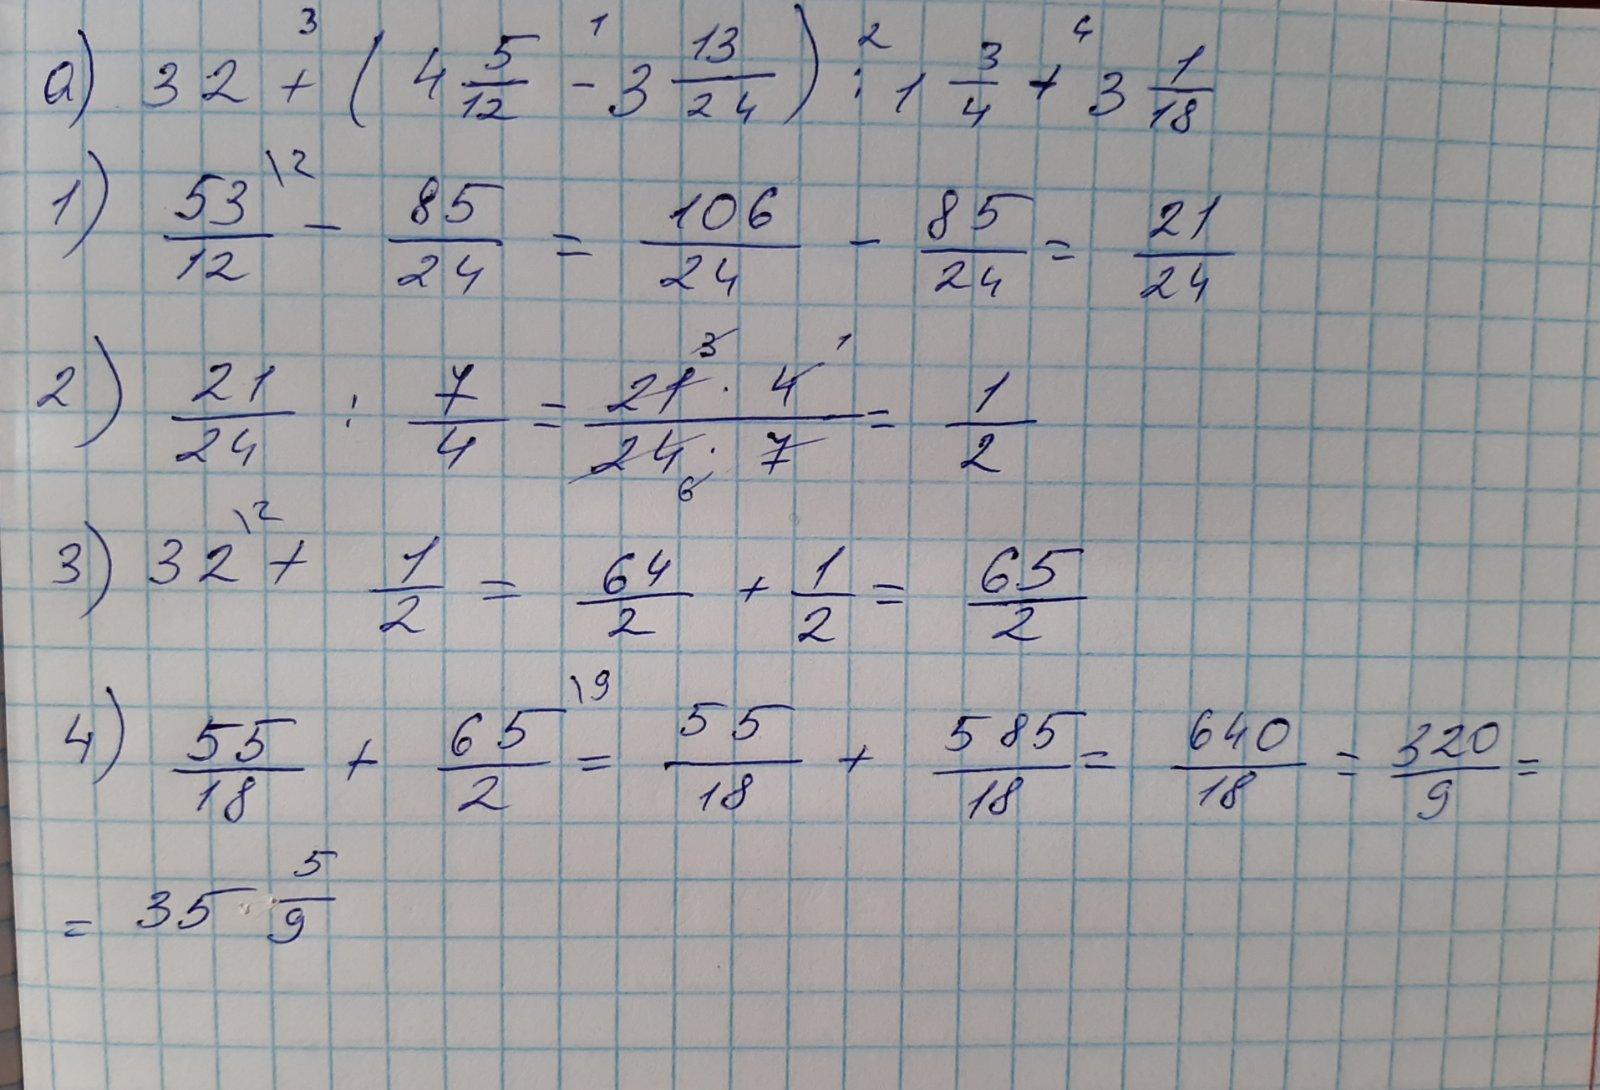 a) 32 + (4 5/12 - 3 13/24) : 1 3/4 + 3 1/18
1) 53/12 \2 - 85/24 = 106/24 - 85/24 = 21/24
2) 21/24 : 7/4 = 21 3 · 4 1 / 24 6 · 7 = 1/2
3) 32 \2 + 1/2 = 64/2 + 1/2 = 65/2
4) 55/18 + 65/2 \9 = 55/18 + 585/18 = 640/18 = 320/9 =
= 35 5/9